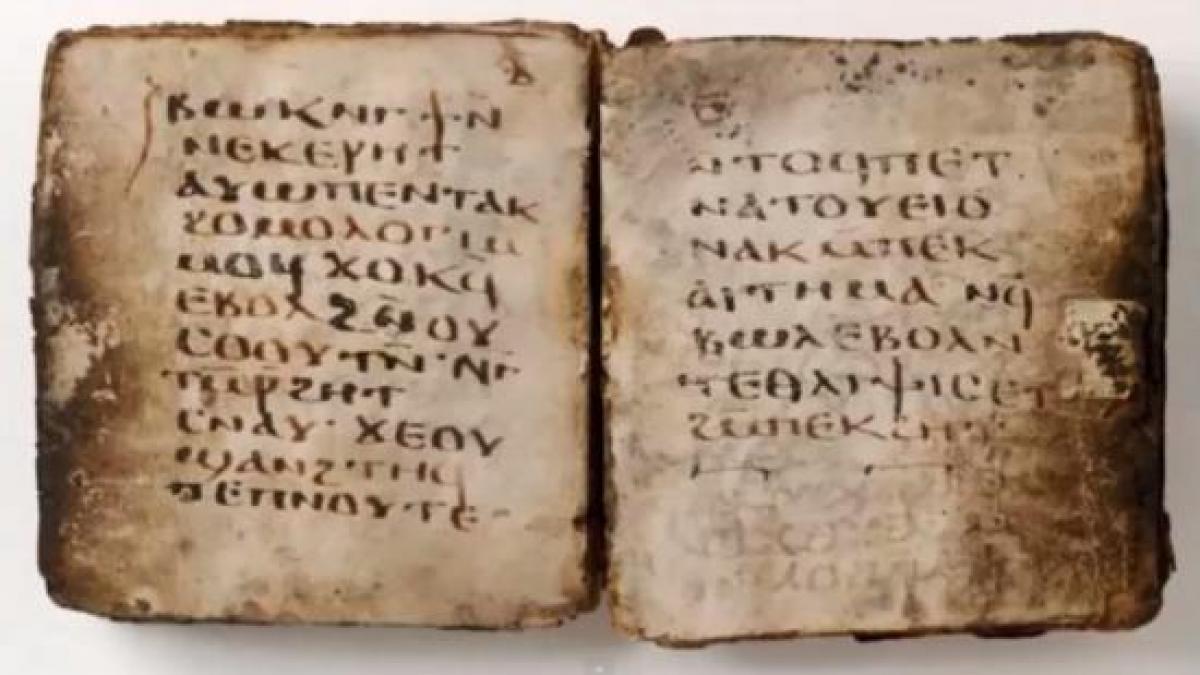 ⲃⲱⲕⲛⲅϯⲛ̄
ⲛⲉⲕⲉⲣⲏⲧ
ⲁⲩⲱⲡⲉⲛⲧⲁⲕ
ϩⲟⲙⲟⲗⲟⲅⲓⲙ̄
ⲙⲟϥϫⲟⲕϥ̄
ⲉⲃⲟⲗϩⲛ̄ⲟⲩ
ⲥⲟⲟⲩⲧⲛ̄·ⲛⲅ̄
ⲧⲙ̄ⲣ̄ϩⲏⲧ
ⲥⲛⲁⲩ·ϫⲉⲟⲩ
ϣⲁⲛϩⲧⲏϥ
ⲡⲉⲡⲛⲟⲩⲧⲉ·
ⲛ̄ⲧⲟϥⲡⲉⲧ
ⲛⲁⲧⲟⲩⲉⲓⲟ
ⲛⲁⲕⲙ̄ⲡⲉⲕ
ⲁⲓⲧⲏⲙⲁ·ⲛϥ̄
ⲃⲱⲗⲉⲃⲟⲗⲛ̄
ⲧⲉⲑⲗⲓⲯⲓⲥⲉⲧ
ϩⲙ̄ⲡⲉⲕϩⲏⲧ·